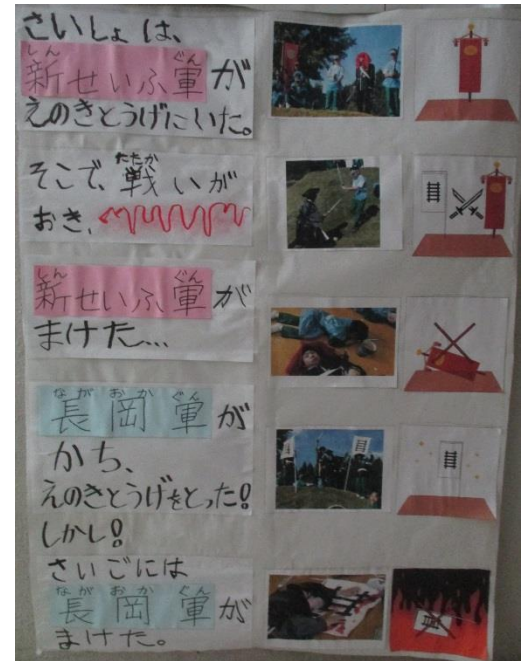 さいしょは、
しん ぐん
新せいふ軍が
えのきとうげにいた。
たたか
そこで、戦いが
おき、
しん ぐん
新せいふ軍が
まけた...
ながおかぐん
長岡軍が
かち、
えのきとうげをとった!
しかし!
さいごには
ながおかぐん
長岡軍が
まけた。